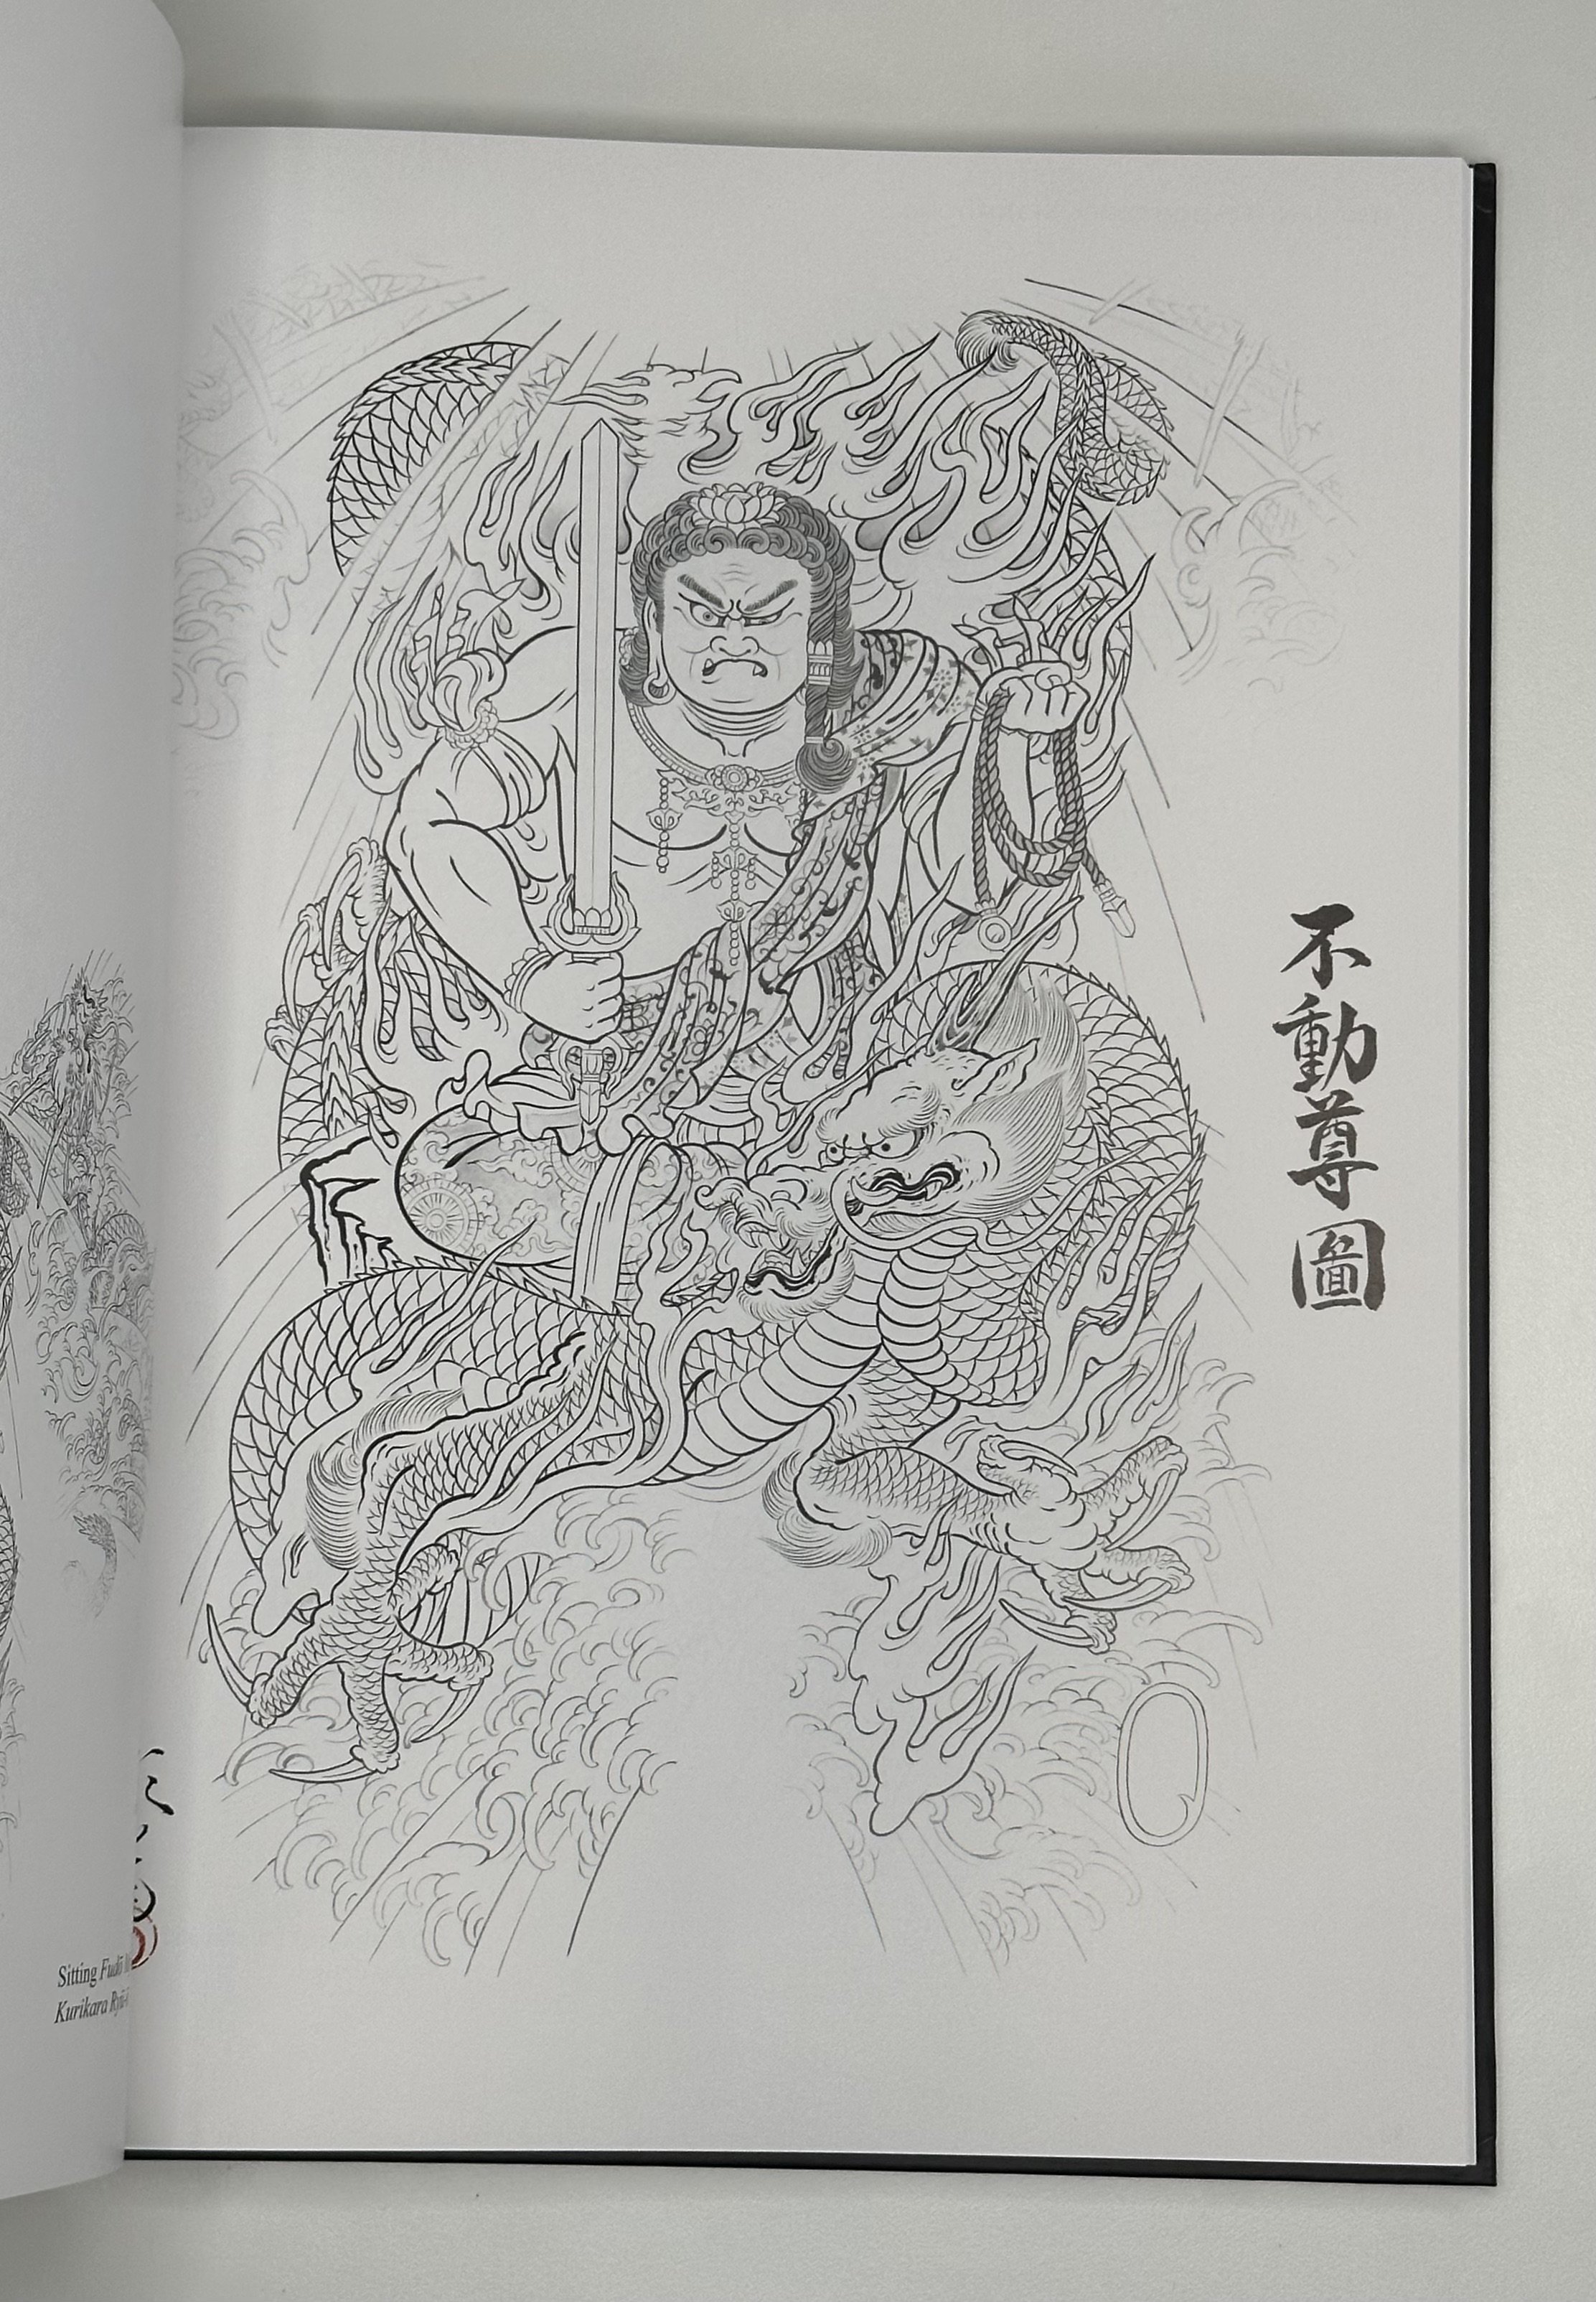 不動尊圖
Sitting Fudō
Kurikara Ryū